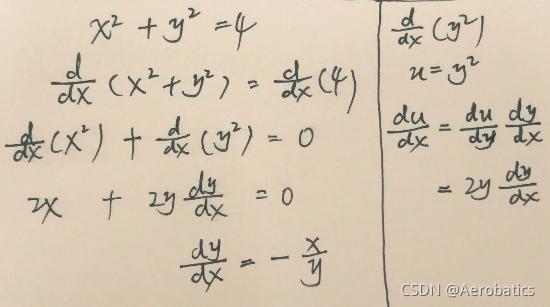 x² + y² = 4
d/dx (x² + y²) = d/dx (4)
d/dx (x²) + d/dx (y²) = 0
2x + 2y dy/dx = 0
dy/dx = - x/y
d/dx (y²)
u = y²
du/dx = du/dy dy/dx
= 2y dy/dx
CSDN @Aerobatics